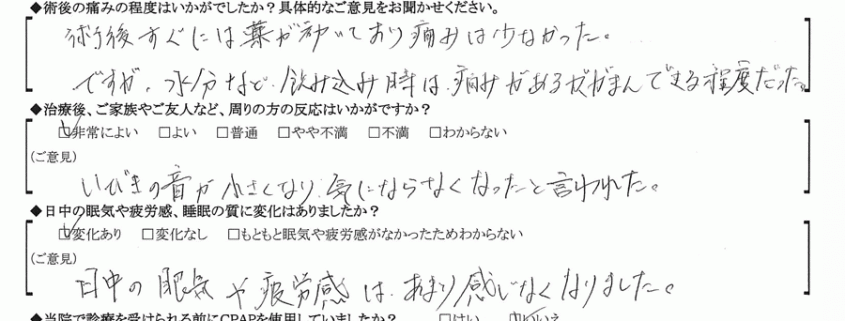 ◆術後の痛みの程度はいかがでしたか？具体的なご意見をお聞かせください。
術後すぐには薬が効いており痛みは少なかった。
ですが、水分など、飲み込み時は、痛みがあるががまんできる程度だった。
◆治療後、ご家族やご友人など、周りの方の反応はいかがですか？
☑非常によい □よい □普通 □やや不満 □不満 □わからない
(ご意見)
いびきの音が小さくなり、気にならなくなったと言われた。
◆日中の眠気や疲労感、睡眠の質に変化はありましたか？
☑変化あり □変化なし □もともと眠気や疲労感がなかったためわからない
(ご意見)
日中の眠気や疲労感は、あまり感じなくなりました。
◆当院で診療を受けられる前にCPAPを使用していましたか？ □はい ☑いいえ